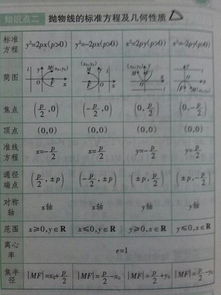 知识点二 抛物线的标准方程及几何性质
标准方程 y²=2px(p>0) y²=-2px(p>0) x²=2py(p>0) x²=-2py(p>0)
简图
焦点 (p/2, 0) (-p/2, 0) (0, p/2) (0, -p/2)
顶点 (0,0) (0,0) (0,0) (0,0)
准线方程 x=-p/2 x=p/2 y=-p/2 y=p/2
通径端点 (p/2, ±p) (-p/2, ±p) (±p, p/2) (±p, -p/2)
对称轴 x轴 x轴 y轴 y轴
范围 x≥0,y∈R x≤0,y∈R y≥0,x∈R y≤0,x∈R
离心率 e=1
焦半径 |MF|=x₀+p/2 |MF|=p/2-x₀ |MF|=p/2+y₀ |MF|=p/2-y₀